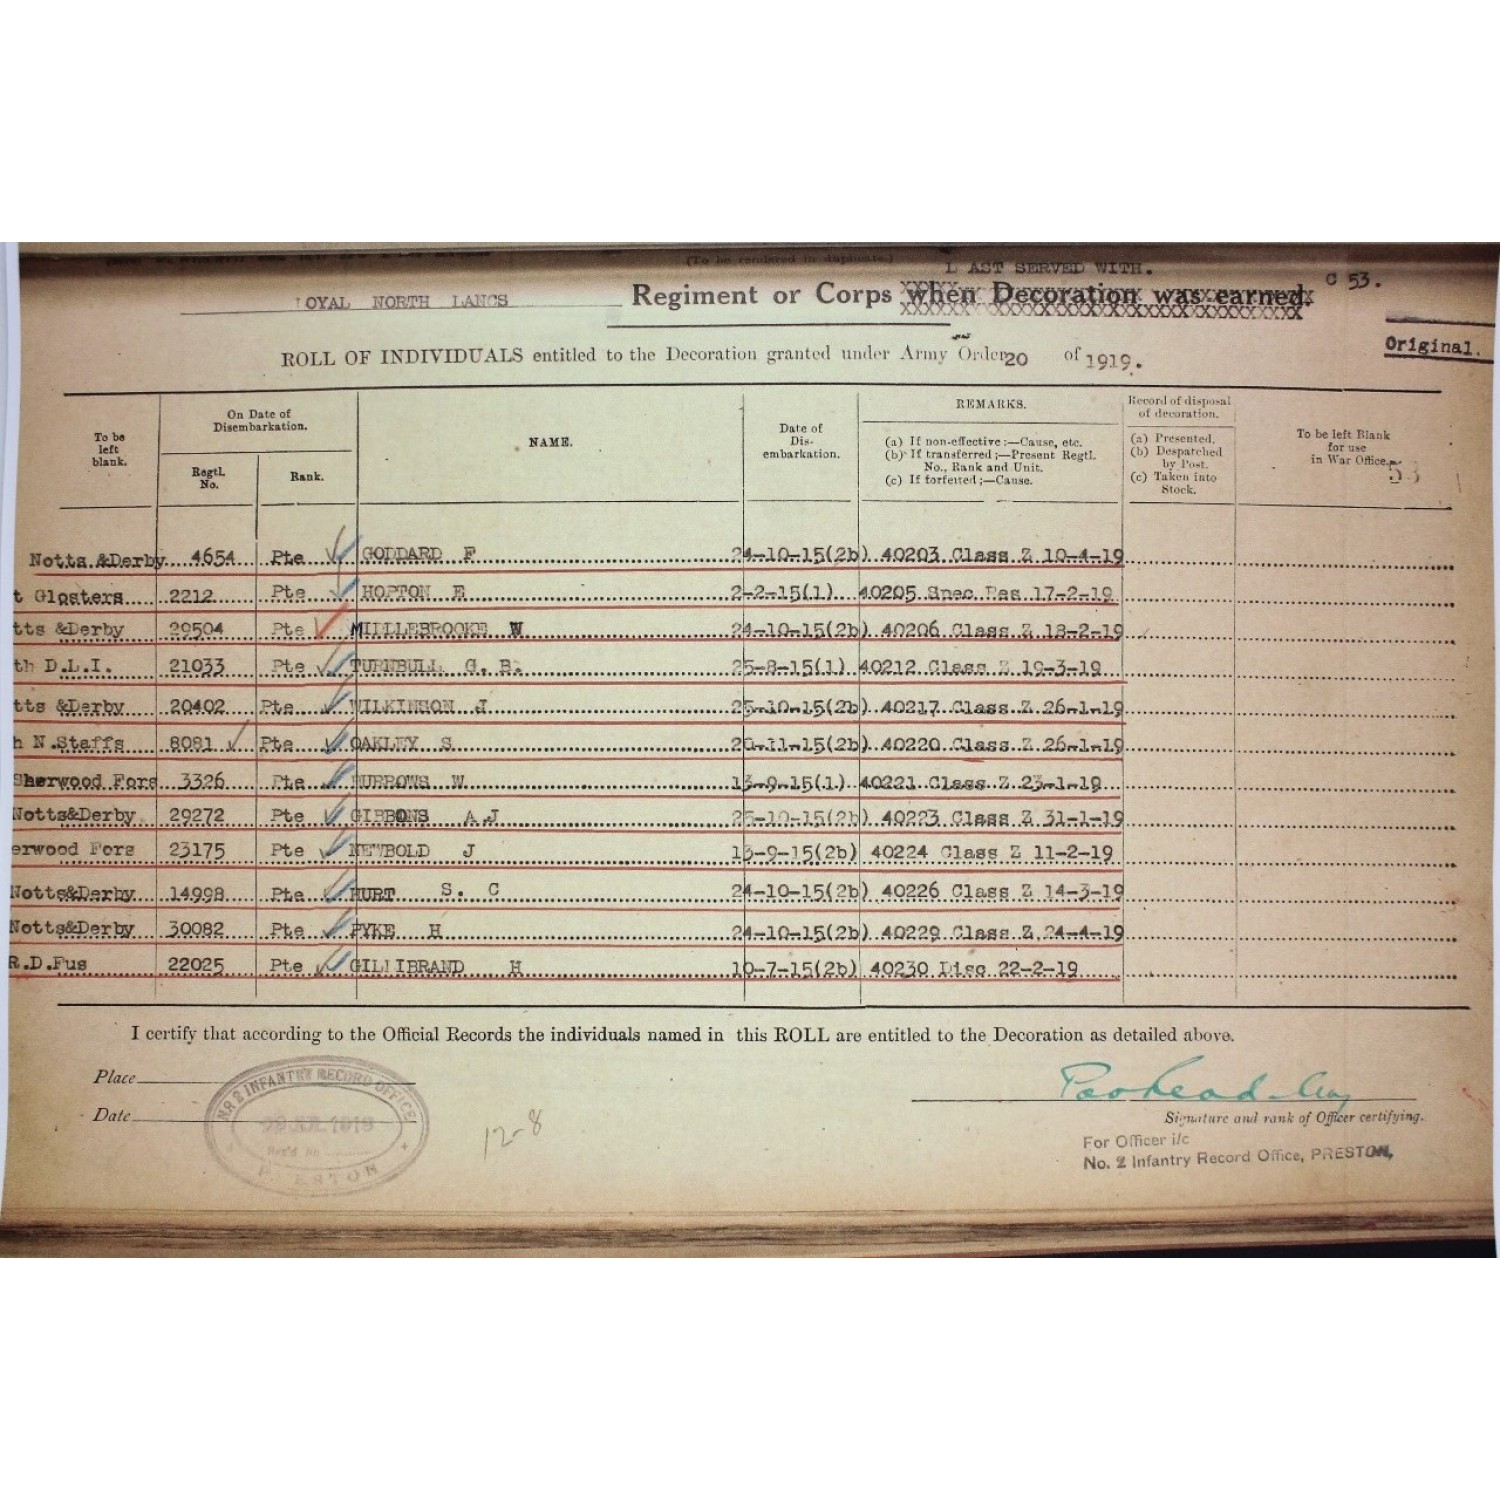 (To be rendered in duplicate.)
L AST SERVED WITH.
C 53.
LOYAL NORTH LANCS Regiment or Corps when Decoration was earned.
Original.
ROLL OF INDIVIDUALS entitled to the Decoration granted under Army Order 20 of 1919.
To be left blank.
On Date of Disembarkation.
Regtl. No.
Rank.
NAME.
Date of Disembarkation.
REMARKS.
(a) If non-effective:—Cause, etc.
(b) If transferred;—Present Regtl. No., Rank and Unit.
(c) If forfeited;—Cause.
Record of disposal of decoration.
(a) Presented.
(b) Despatched by Post.
(c) Taken into Stock.
To be left Blank for use in War Office.
53
Notts &Derby 4654 Pte GODDARD F 24-10-15(2b) 40203 Class Z 10-4-19
t Glosters 2212 Pte HOPTON E 2-2-15(1) 40205 Spec Res 17-2-19
tts &Derby 29504 Pte MILLLEBROOKE W 24-10-15(2b) 40206 Class Z 18-2-19
th D.L.I. 21033 Pte TURNBULL G. B. 25-8-15(1) 40212 Class Z 19-3-19
tts &Derby 20402 Pte WILKINSON J 25-10-15(2b) 40217 Class Z 26-1-19
h N.Staffs 8081 Pte OAKLEY S 20-11-15(2b) 40220 Class Z 26-1-19
Sherwood Fors 3326 Pte BURROWS W 13-9-15(1) 40221 Class Z 23-1-19
Notts&Derby 29272 Pte GIBBONS A J 25-10-15(2b) 40223 Class Z 31-1-19
erwood Fors 23175 Pte NEWBOLD J 13-9-15(2b) 40224 Class Z 11-2-19
Notts&Derby 14998 Pte HURT S. C 24-10-15(2b) 40226 Class Z 14-3-19
Notts&Derby 30082 Pte PYKE H 24-10-15(2b) 40229 Class Z 24-4-19
R.D.Fus 22025 Pte GILLIBRAND H 10-7-15(2b) 40230 Disc 22-2-19
I certify that according to the Official Records the individuals named in this ROLL are entitled to the Decoration as detailed above.
Place
Date
INFANTRY RECORD OFFICE
1919
PRESTON
12-8
Signature and rank of Officer certifying.
For Officer i/c
No. 2 Infantry Record Office, PRESTON,